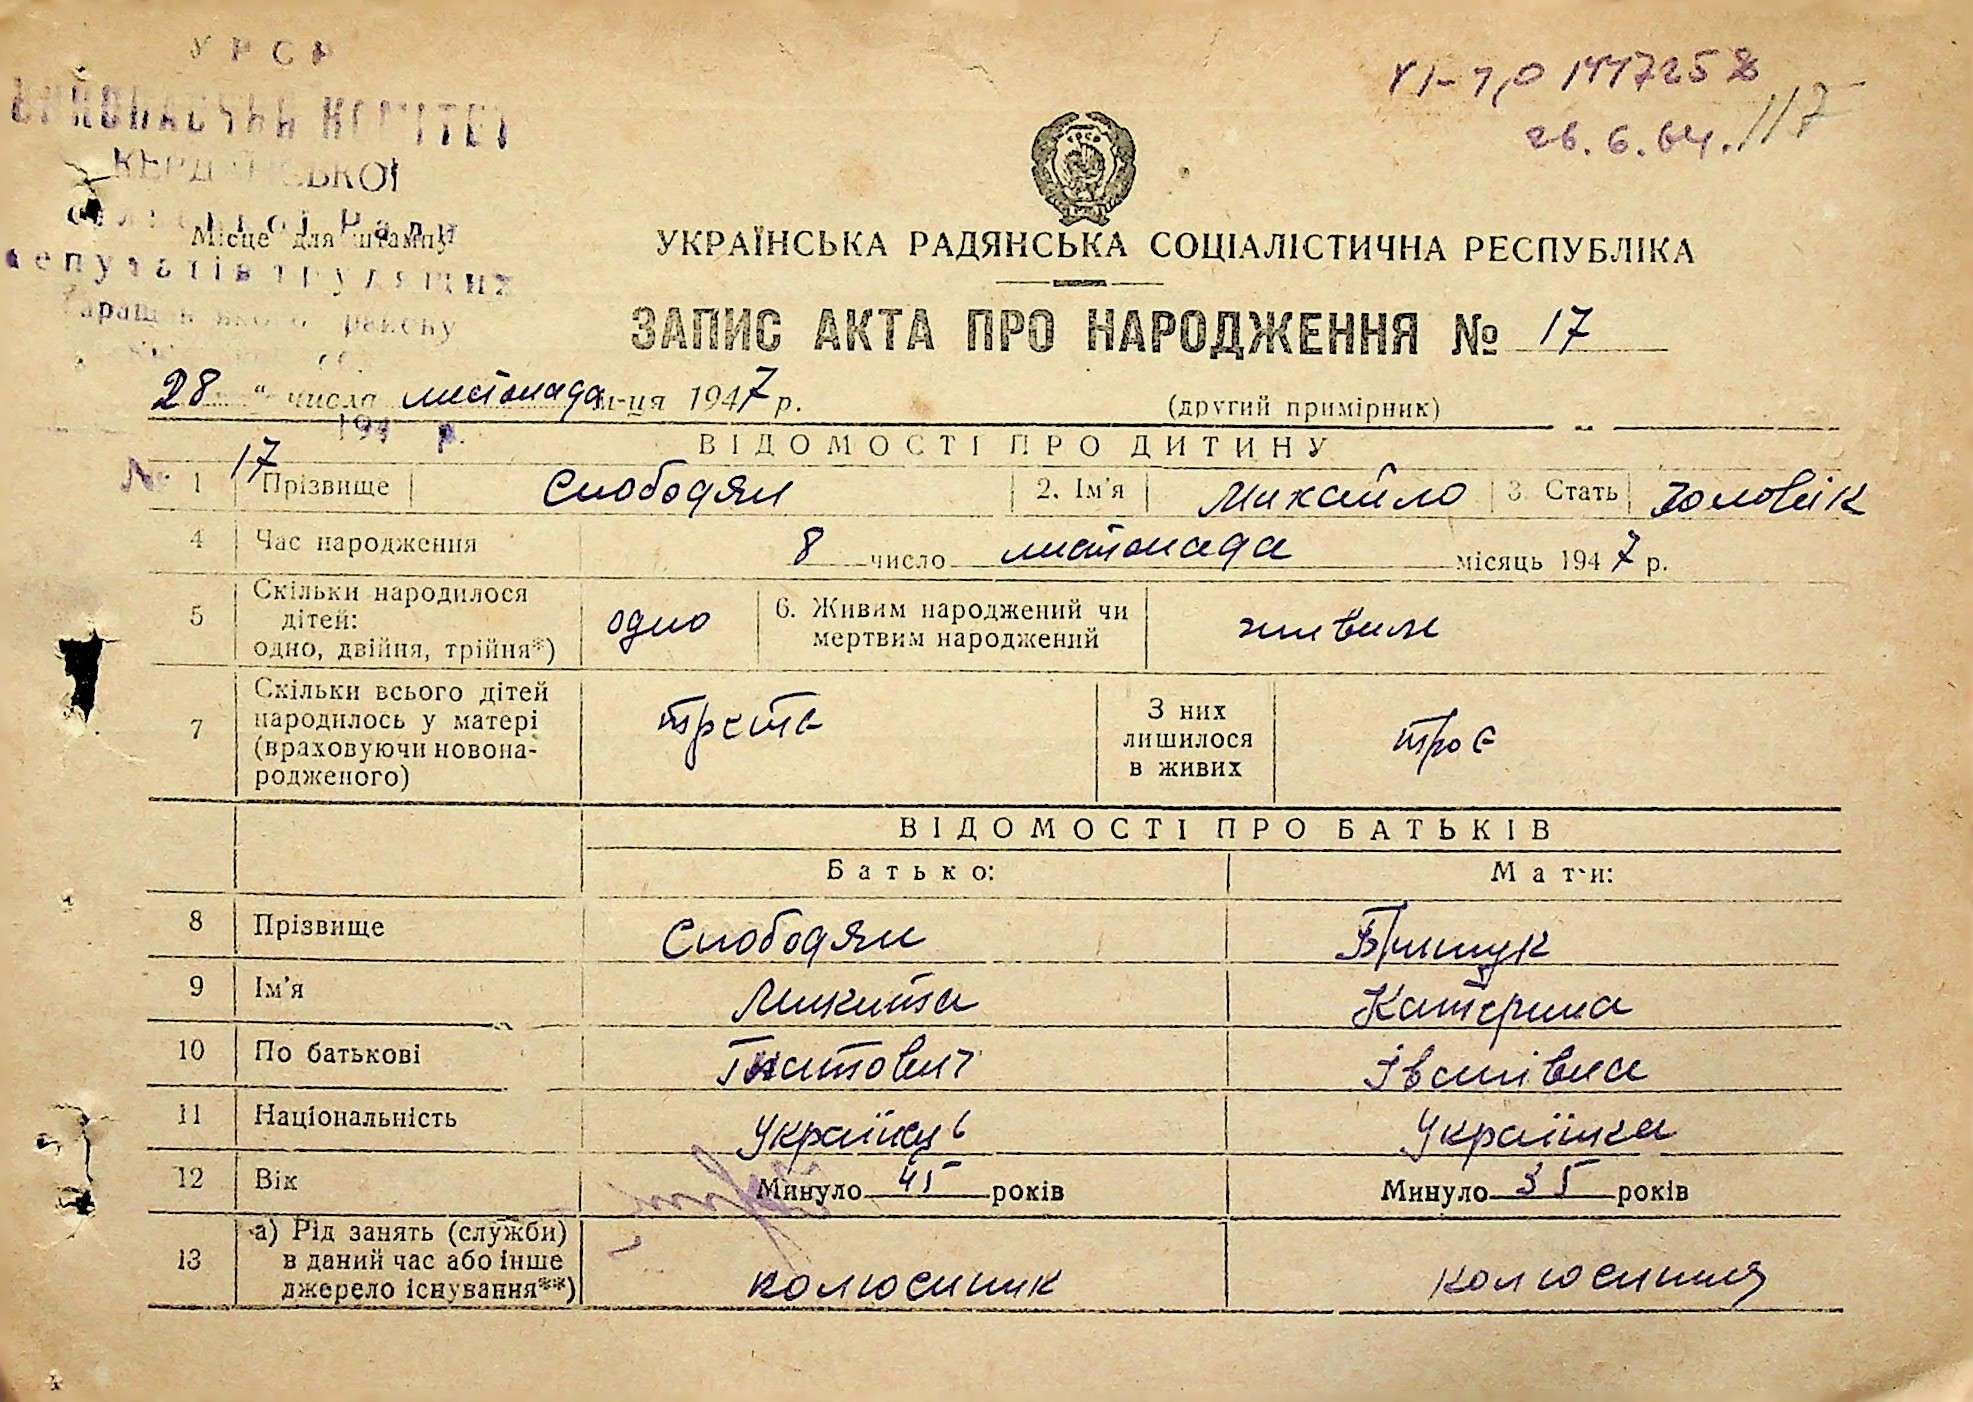 УРСР
ВИКОНАВЧИЙ КОМІТЕТ
Місце для штампу
Ради
депутатів трудящих
району
VI-
26.6.64. 117
УКРАЇНСЬКА РАДЯНСЬКА СОЦІАЛІСТИЧНА РЕСПУБЛІКА
ЗАПИС АКТА ПРО НАРОДЖЕННЯ № 17
28 " числа листопада м-ця 1947 р.
(другий примірник)
194 р.
№ 17
ВІДОМОСТІ ПРО ДИТИНУ
1 Прізвище Слободян 2. Ім'я Михайло 3. Стать чоловік
4 Час народження 8 число листопада місяць 1947 р.
5 Скільки народилося дітей: одно, двійня, трійня*) одно 6. Живим народжений чи мертвим народжений живим
7 Скільки всього дітей народилось у матері (враховуючи новонародженого) третє З них лишилося в живих троє
ВІДОМОСТІ ПРО БАТЬКІВ
Батько: Мати:
8 Прізвище Слободян
9 Ім'я Микита Катерина
10 По батькові Гнатович Іванівна
11 Національність Українець Українка
12 Вік Минуло 45 років Минуло 35 років
13 а) Рід занять (служби) в даний час або інше джерело існування**) колгоспник колгоспниця